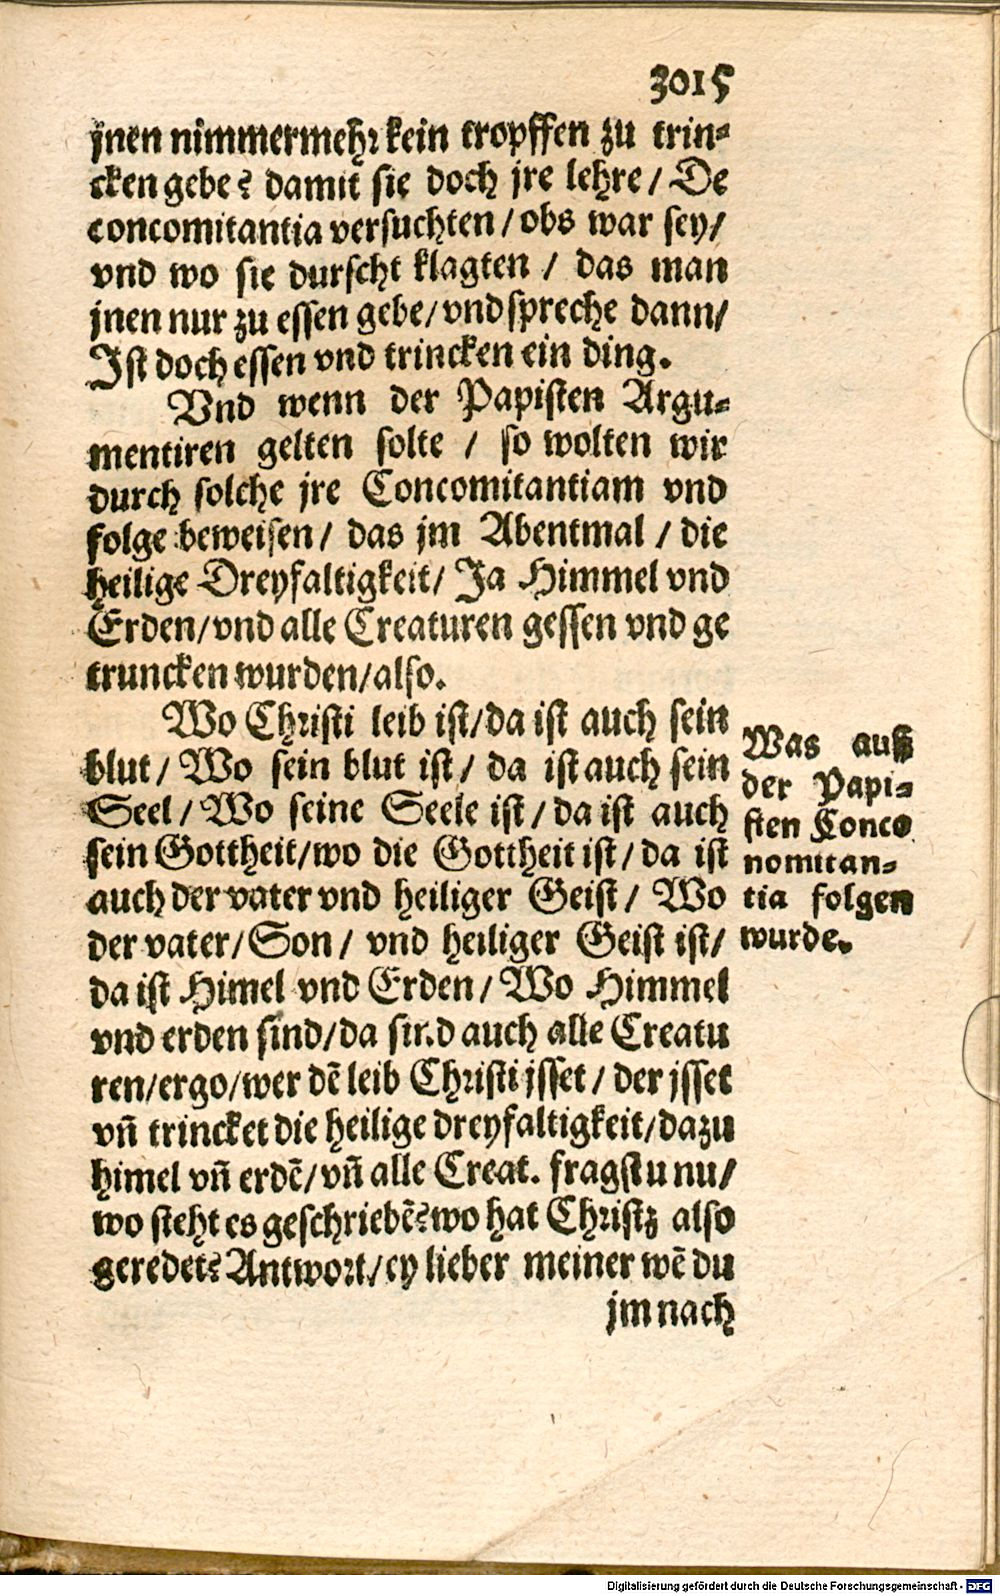 3015
jnen nimmermehr kein tropffen zu trin⸗
cken gebe? damit sie doch jre lehre / De
concomitantia versuchten / obs war sey /
vnd wo sie durscht klagten / das man
jnen nur zu essen gebe / vnd spreche dann /
Ist doch essen vnd trincken ein ding.
Vnd wenn der Papisten Argu⸗
mentiren gelten solte / so wolten wir
durch solche jre Concomitantiam vnd
folge beweisen / das jm Abentmal / die
heilige Dreyfaltigkeit / Ja Himmel vnd
Erden / vnd alle Creaturen gessen vnd ge
truncken wurden / also.
Wo Christi leib ist / da ist auch sein
blut / Wo sein blut ist / da ist auch sein
Seel / Wo seine Seele ist / da ist auch
sein Gottheit / wo die Gottheit ist / da ist
auch der vater vnd heiliger Geist / Wo
der vater / Son / vnd heiliger Geist ist /
da ist Himel vnd Erden / Wo Himmel
vnd erden sind / da sind auch alle Creatu
ren / ergo / wer dē leib Christi jsset / der jsset
vn̄ trincket die heilige dreyfaltigkeit / dazu
himel vn̄ erdē / vn̄ alle Creat. fragstu nu /
wo steht es geschriebē? wo hat Christꝫ also
geredet? Antwort / ey lieber meiner wē du
jm nach
Was auß
der Papi⸗
sten Conco
nomitan⸗
tia folgen
wurde.
Digitalisierung gefördert durch die Deutsche Forschungsgemeinschaft - DFG